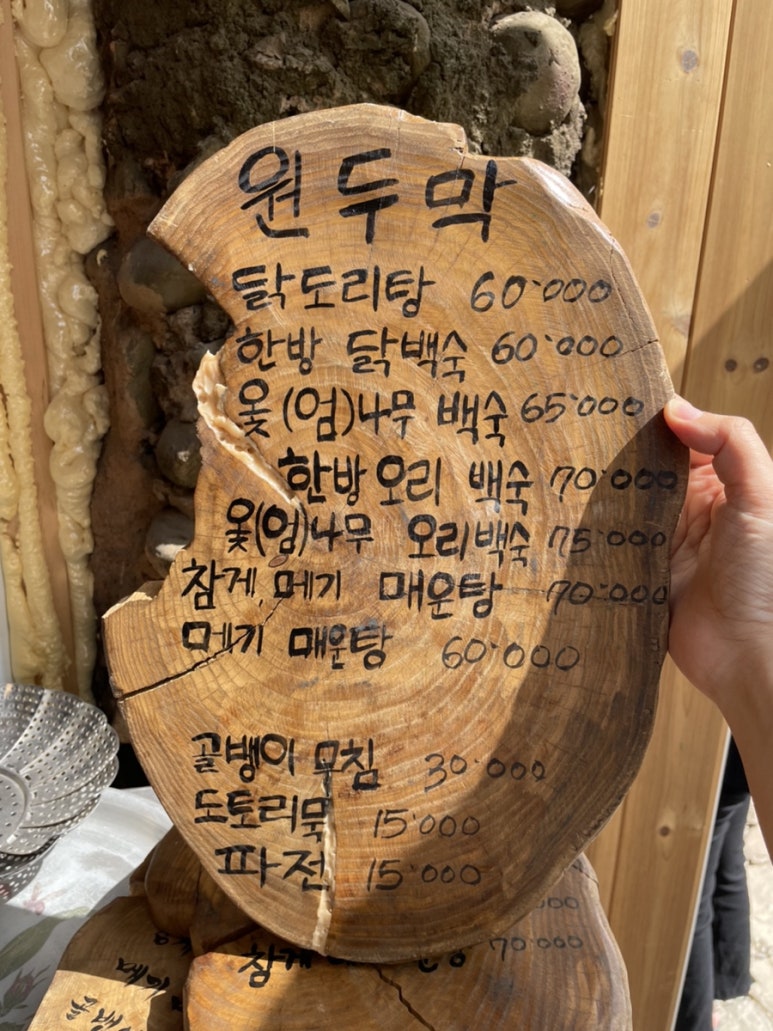 원두막
닭도리탕 60,000
한방 닭백숙 60,000
옻(엄)나무 백숙 65,000
한방오리 백숙 70,000
옻(엄)나무 오리백숙 75,000
참게,메기 매운탕 70,000
메기 매운탕 60,000
골뱅이 무침 30,000
도토리묵 15,000
파전 15,000
000
참게 70,000
메기